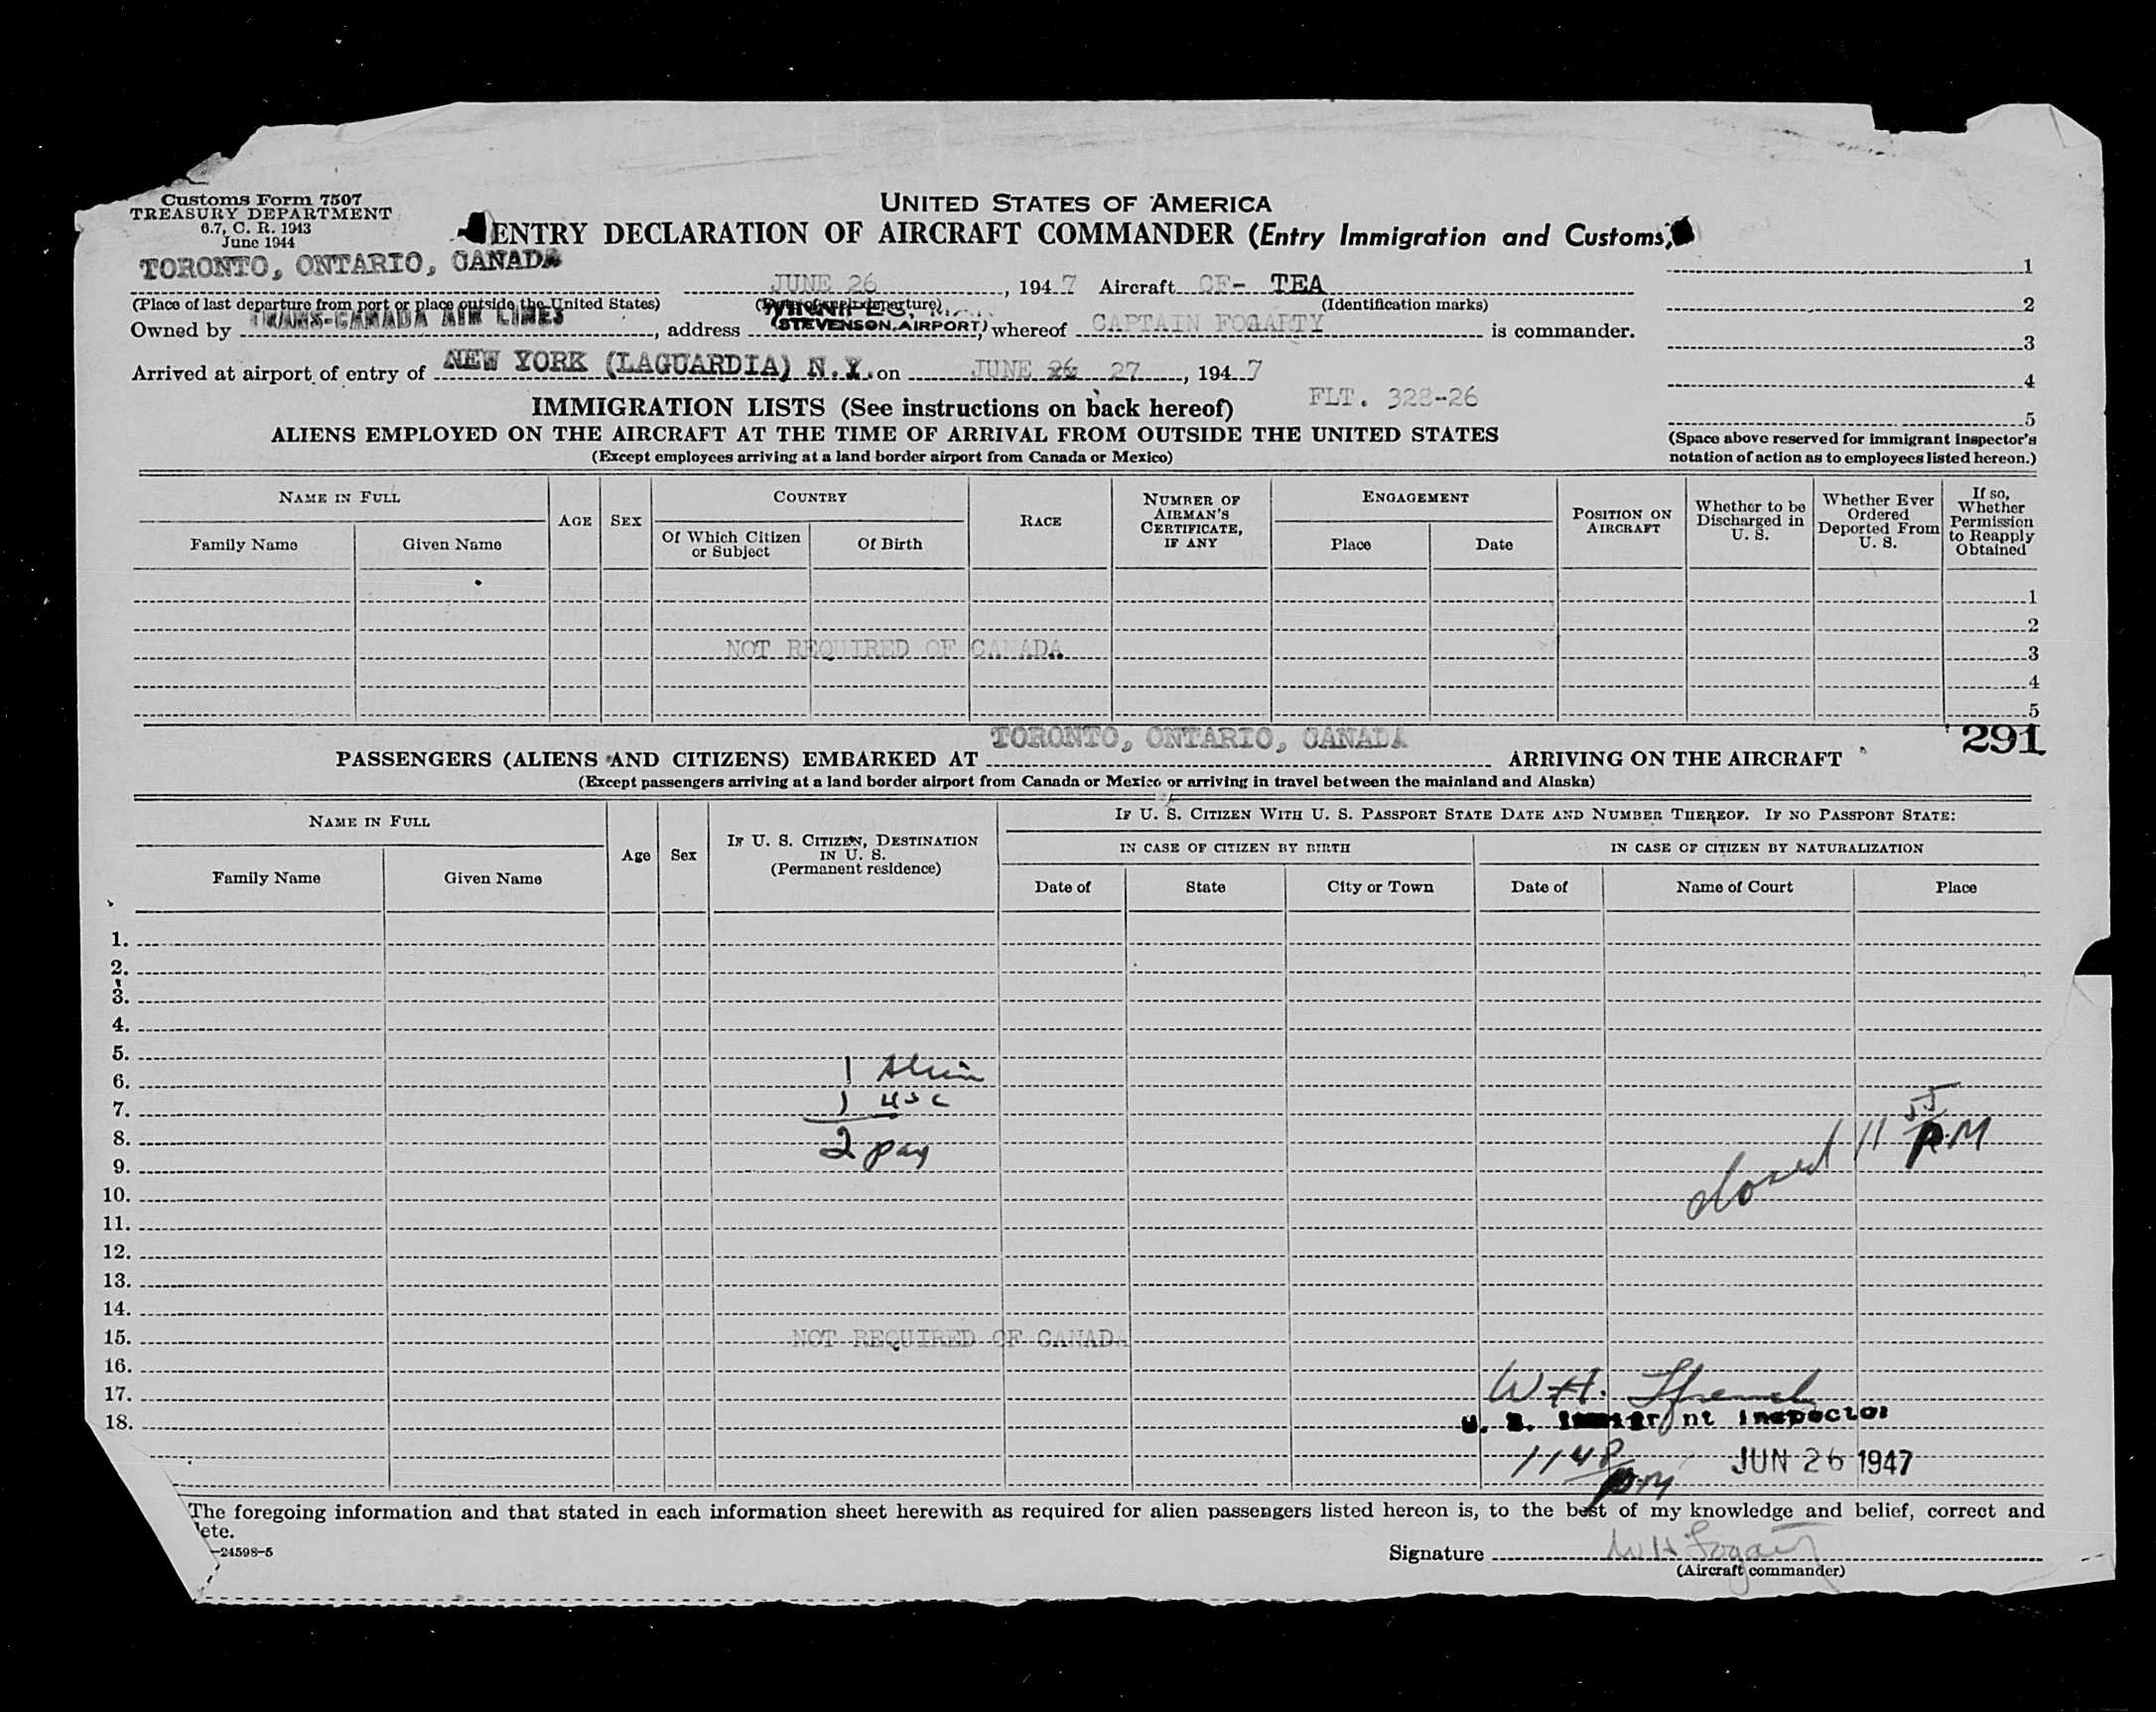 Customs Form 7507
TREASURY DEPARTMENT
6.7, C. R. 1943
June 1944
UNITED STATES OF AMERICA
ENTRY DECLARATION OF AIRCRAFT COMMANDER (Entry Immigration and Customs)
TORONTO, ONTARIO, CANADA
JUNE 26, 1947 Aircraft CF- TEA
(Place of last departure from port or place outside the United States)
(Identification marks)
Owned by TRANS-CANADA AIR LINES, address WINNIPEG, (STEVENSON AIRPORT) whereof CAPTAIN FOGARTY is commander.
Arrived at airport of entry of NEW YORK (LAGUARDIA) N.Y. on JUNE 26 27, 1947
FLT. 328-26
1
2
3
4
5
(Space above reserved for immigrant inspector's
notation of action as to employees listed hereon.)
IMMIGRATION LISTS (See instructions on back hereof)
ALIENS EMPLOYED ON THE AIRCRAFT AT THE TIME OF ARRIVAL FROM OUTSIDE THE UNITED STATES
(Except employees arriving at a land border airport from Canada or Mexico)
NAME IN FULL
Family Name
Given Name
AGE
SEX
COUNTRY
Of Which Citizen or Subject
Of Birth
RACE
NUMBER OF AIRMAN'S CERTIFICATE, IF ANY
ENGAGEMENT
Place
Date
POSITION ON AIRCRAFT
Whether to be Discharged in U. S.
Whether Ever Ordered Deported From U. S.
If so, Whether Permission to Reapply Obtained
1
2
NOT REQUIRED OF CANADA 3
4
5
291
TORONTO, ONTARIO, CANADA
PASSENGERS (ALIENS AND CITIZENS) EMBARKED AT ARRIVING ON THE AIRCRAFT
(Except passengers arriving at a land border airport from Canada or Mexico or arriving in travel between the mainland and Alaska)
NAME IN FULL
Family Name
Given Name
Age
Sex
IF U. S. CITIZEN, DESTINATION IN U. S.
(Permanent residence)
IF U. S. CITIZEN WITH U. S. PASSPORT STATE DATE AND NUMBER THEREOF. IF NO PASSPORT STATE:
IN CASE OF CITIZEN BY BIRTH
Date of
State
City or Town
IN CASE OF CITIZEN BY NATURALIZATION
Date of
Name of Court
Place
1.
2.
3.
4.
5.
6. 1 Alien
7. 1 usc
8. 2 pax
closed 11 55 P.M
9.
10.
11.
12.
13.
14.
15. NOT REQUIRED OF CANADA
16.
17. W.H.
18. U. S. Immigrant Inspector
11 48 P.M JUN 26 1947
The foregoing information and that stated in each information sheet herewith as required for alien passengers listed hereon is, to the best of my knowledge and belief, correct and
lete.
-24598-5
Signature W H Fogarty
(Aircraft commander)